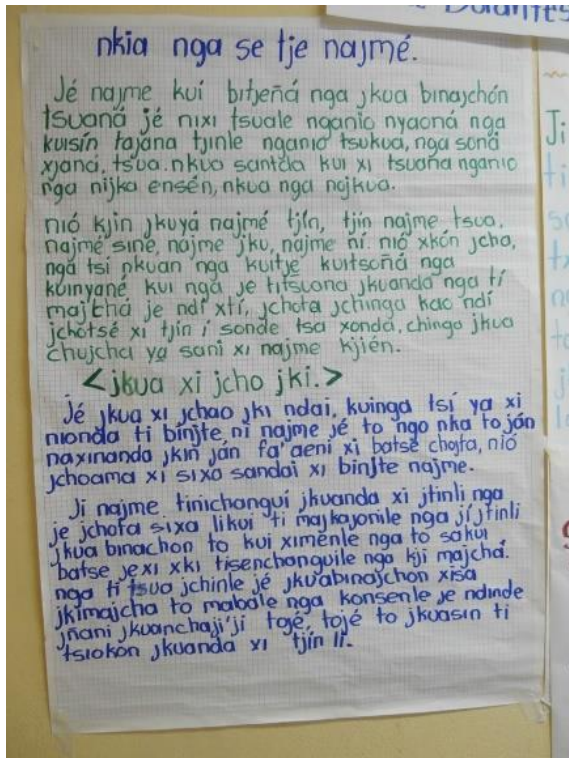 nkia nga se tje najmé.
Jé najme kui bitjeñá nga jkua binajchón
tsuaná jé nixi tsuale nganio nyaoná nga
kuisín tajana tjinle nganio tsukua, nga soná
xjaná, tsua. nkua santda kui xi tsuaña nganio
nga nijka ensén, nkua nga najkua.
nió kjin jkuyá najmé tjín, tjin najme tsua,
najmé siné, najme jku, najme ní. nió xkón jcho,
ngá tsi nkuan nga kuitje kuitsoñá nga
kuinyané kui nga je titsuona jkuanda nga tí
majchá je ndí xtí, jchota jchinga kao ndí
jchotsé xi tjín i sonde tsa xonda, chinga jkua
chujcha ya sani xi najme kjién.
<jkua xi jcho jki.>
Jé jkua xi jchao jki ndai, kuinga tsí ya xi
nionda ti binjte ni najme jé to ngo nka to ján
naxinanda jkin ján fa'aeni xi batse chota, nió
jchoama xi sixa sandai xi binjte najme.
Ji najme tinichanguí jkuanda xi jtinli nga
je jchota sixa likui ti majkajonile nga jí jtinli
jkua binachon to kui ximénle nga to sakui
batse jexi xki tisenchanguile nga kji majchá.
nga ti tsua jchinle jé jkuabinajchon xisa
jkimajcha to mabale nga konsenle je ndinde
jñani jkuanchaji'ji tojé, tojé to jkuasin ti
tsiokón jkuanda xi tjín li.
Ji